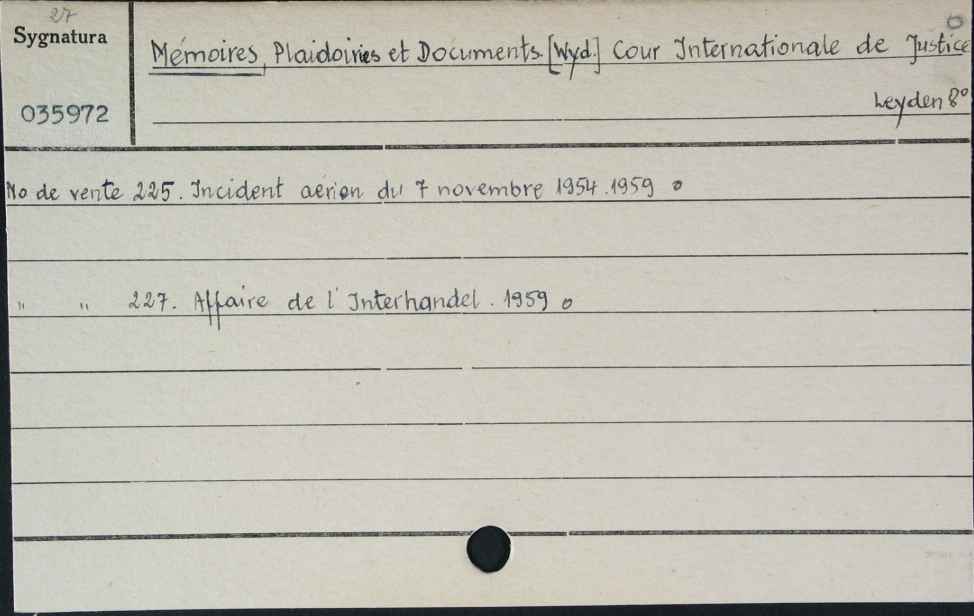 27
Sygnatura
Mémoires, Plaidoiries et Documents. [Wyd.] Cour Internationale de Justice
035972
Leyden 8°
No de vente 225. Incident aérien du 7 novembre 1954. 1959 o
" " 227. Affaire de l'Interhandel. 1959 o